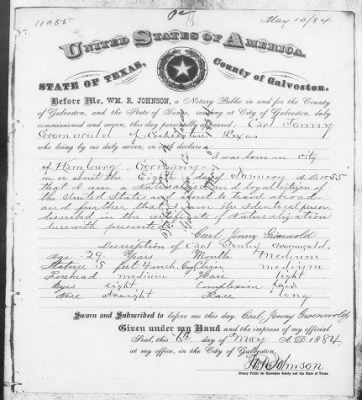 11055
May 10/84
UNITED STATES OF AMERICA.
STATE OF TEXAS, County of Galveston.
Before Me, WM. R. JOHNSON, a Notary Public in and for the County
of Galveston, and the State of Texas, residing at City of Galveston, duly
commissioned and sworn, this day personally appeared Carl Jonny
Groenwold of Texas
who being by me duly sworn, on oath declare
I was born in City
of Hamburg Germany
on or about the Eighth day of January A.D. 1855
that I am a Naturalized and loyal citizen of
the United States and about to travel abroad
and further that I am the Identical person
described in the certificate of Naturalization
herewith presented
Carl Jonny Groenwold
Description of Carl Jonny Groenwold.
Age - 29 - Years Mouth Medium
Stature 5 feet 4 inch Eng Chin medium
Forehead medium Hair light
Eyes light Complexion fair
Nose straight Face long
Sworn and Subscribed to before me this day. Carl Jonny Groenwold
Given under my Hand and the impress of my official
Seal, this 6th day of May A.D. 1884
at my office, in the City of Galveston.
W R Johnson
Notary Public for Galveston County and the State of Texas.